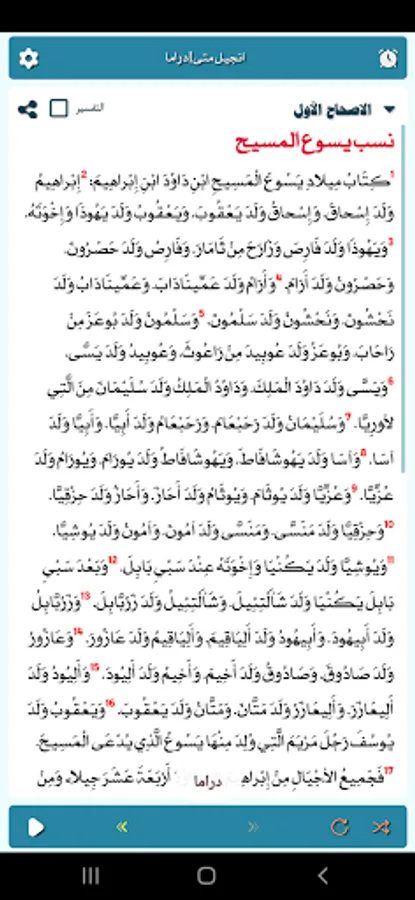 انجيل متى|دراما
الاصحاح الأول
التفسير
نسب يسوع المسيح
1كِتَابُ مِيلاَدِ يَسُوعَ الْمَسِيحِ ابْنِ دَاوُدَ ابْنِ إِبْراهِيمَ: 2إِبْراهِيمُ
وَلَدَ إِسْحاقَ. وَإِسْحاقُ وَلَدَ يَعْقُوبَ. وَيَعْقُوبُ وَلَدَ يَهُوذَا وَإِخْوَتَهُ.
3وَيَهُوذَا وَلَدَ فَارِصَ وَزَارَحَ مِنْ ثَامَارَ. وَفَارِصُ وَلَدَ حَصْرُونَ.
وَحَصْرُونُ وَلَدَ أَرَامَ. 4وَأَرَامُ وَلَدَ عَمِّينَادَابَ. وَعَمِّينَادَابُ وَلَدَ
نَحْشُونَ. وَنَحْشُونُ وَلَدَ سَلْمُونَ. 5وَسَلْمُونُ وَلَدَ بُوعَزَ مِنْ
رَاحَابَ. وَبُوعَزُ وَلَدَ عُوبِيدَ مِنْ رَاعُوثَ. وَعُوبِيدُ وَلَدَ يَسَّى.
6وَيَسَّى وَلَدَ دَاوُدَ الْمَلِكَ. وَدَاوُدُ الْمَلِكُ وَلَدَ سُلَيْمَانَ مِنَ الَّتِي
لأُورِيَّا. 7وَسُلَيْمَانُ وَلَدَ رَحَبْعَامَ. وَرَحَبْعَامُ وَلَدَ أَبِيَّا. وَأَبِيَّا وَلَدَ
آسَا. 8وَآسَا وَلَدَ يَهُوشَافَاطَ. وَيَهُوشَافَاطُ وَلَدَ يُورَامَ. وَيُورَامُ وَلَدَ
عُزِّيَّا. 9وَعُزِّيَّا وَلَدَ يُوثَامَ. وَيُوثَامُ وَلَدَ أَحَازَ. وَأَحَازُ وَلَدَ حِزْقِيَّا.
10وَحِزْقِيَّا وَلَدَ مَنَسَّى. وَمَنَسَّى وَلَدَ آمُونَ. وَآمُونُ وَلَدَ يُوشِيَّا.
11وَيُوشِيَّا وَلَدَ يَكُنْيَا وَإِخْوَتَهُ عِنْدَ سَبْيِ بَابِلَ. 12وَبَعْدَ سَبْيِ
بَابِلَ يَكُنْيَا وَلَدَ شَأَلْتِئِيلَ. وَشَأَلْتِئِيلُ وَلَدَ زَرُبَّابِلَ. 13وَزَرُبَّابِلُ
وَلَدَ أَبِيهُودَ. وَأَبِيهُودُ وَلَدَ أَلِيَاقِيمَ. وَأَلِيَاقِيمُ وَلَدَ عَازُورَ. 14وَعَازُورُ
وَلَدَ صَادُوقَ. وَصَادُوقُ وَلَدَ أَخِيمَ. وَأَخِيمُ وَلَدَ أَلِيُودَ. 15وَأَلِيُودُ وَلَدَ
أَلِيعَازَرَ. وَأَلِيعَازَرُ وَلَدَ مَتَّانَ. وَمَتَّانُ وَلَدَ يَعْقُوبَ. 16وَيَعْقُوبُ وَلَدَ
يُوسُفَ رَجُلَ مَرْيَمَ الَّتِي وُلِدَ مِنْهَا يَسُوعُ الَّذِي يُدْعَى الْمَسِيحَ.
17فَجَمِيعُ الأَجْيَالِ مِنْ إِبْراهِـ أَرْبَعَةَ عَشَرَ جِيلاً، وَمِنْ
دراما